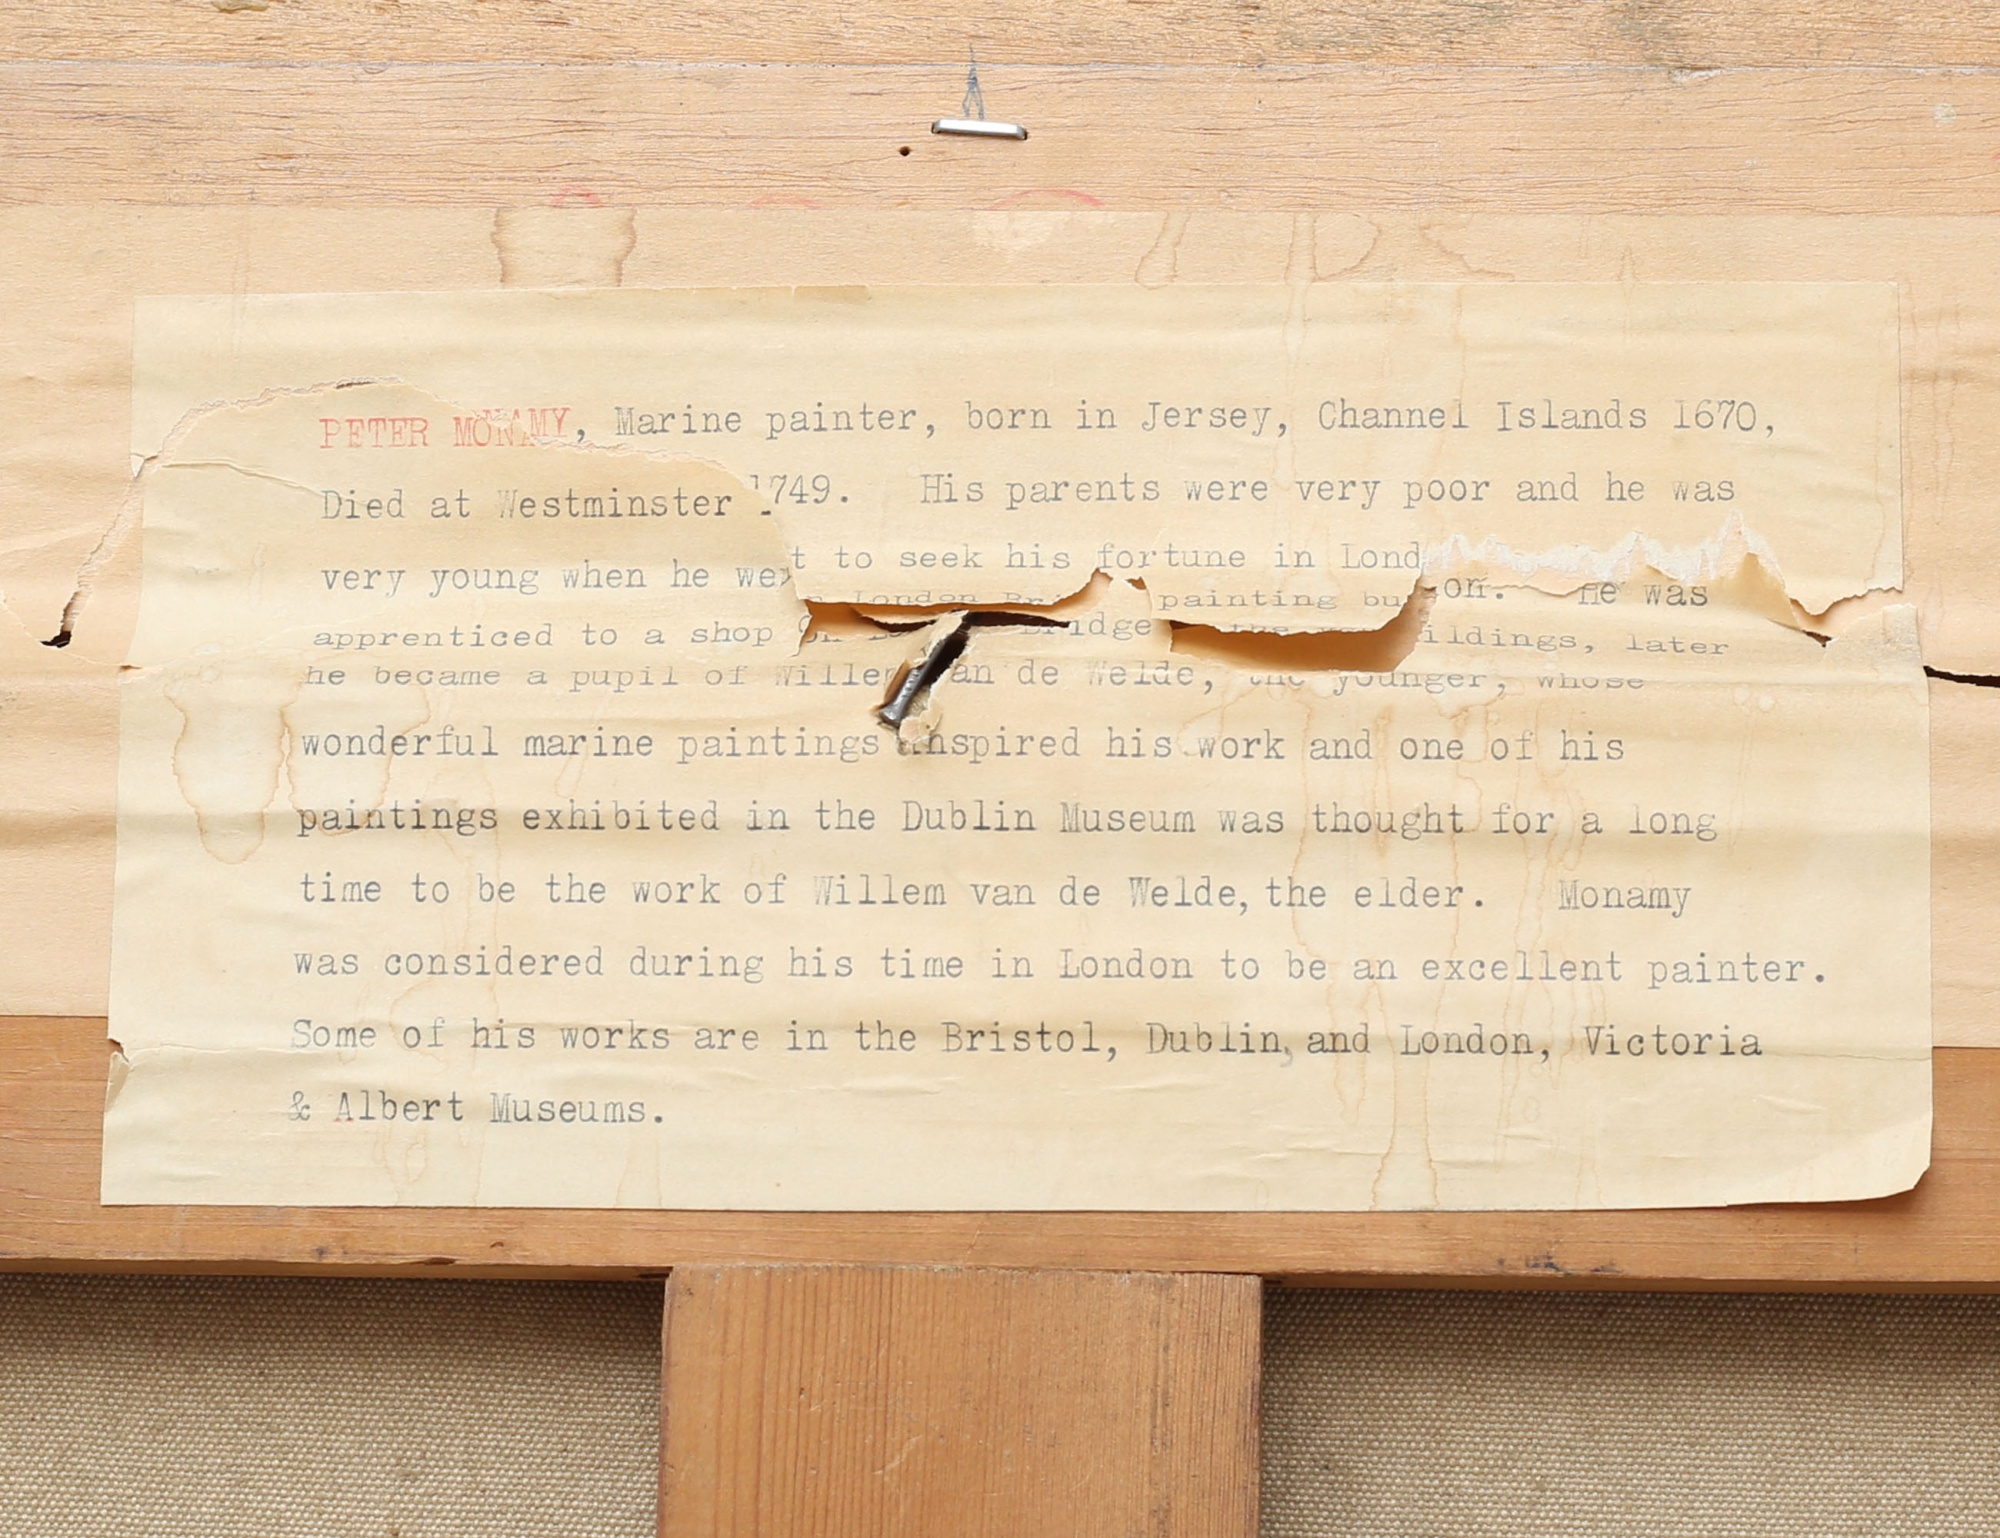 PETER MONAMY, Marine painter, born in Jersey, Channel Islands 1670,
Died at Westminster 1749. His parents were very poor and he was
very young when he went to seek his fortune in London. He was
apprenticed to a shop on London Bridge painting buildings, later
he became a pupil of Willem van de Welde, the younger, whose
wonderful marine paintings inspired his work and one of his
paintings exhibited in the Dublin Museum was thought for a long
time to be the work of Willem van de Welde, the elder. Monamy
was considered during his time in London to be an excellent painter.
Some of his works are in the Bristol, Dublin, and London, Victoria
& Albert Museums.